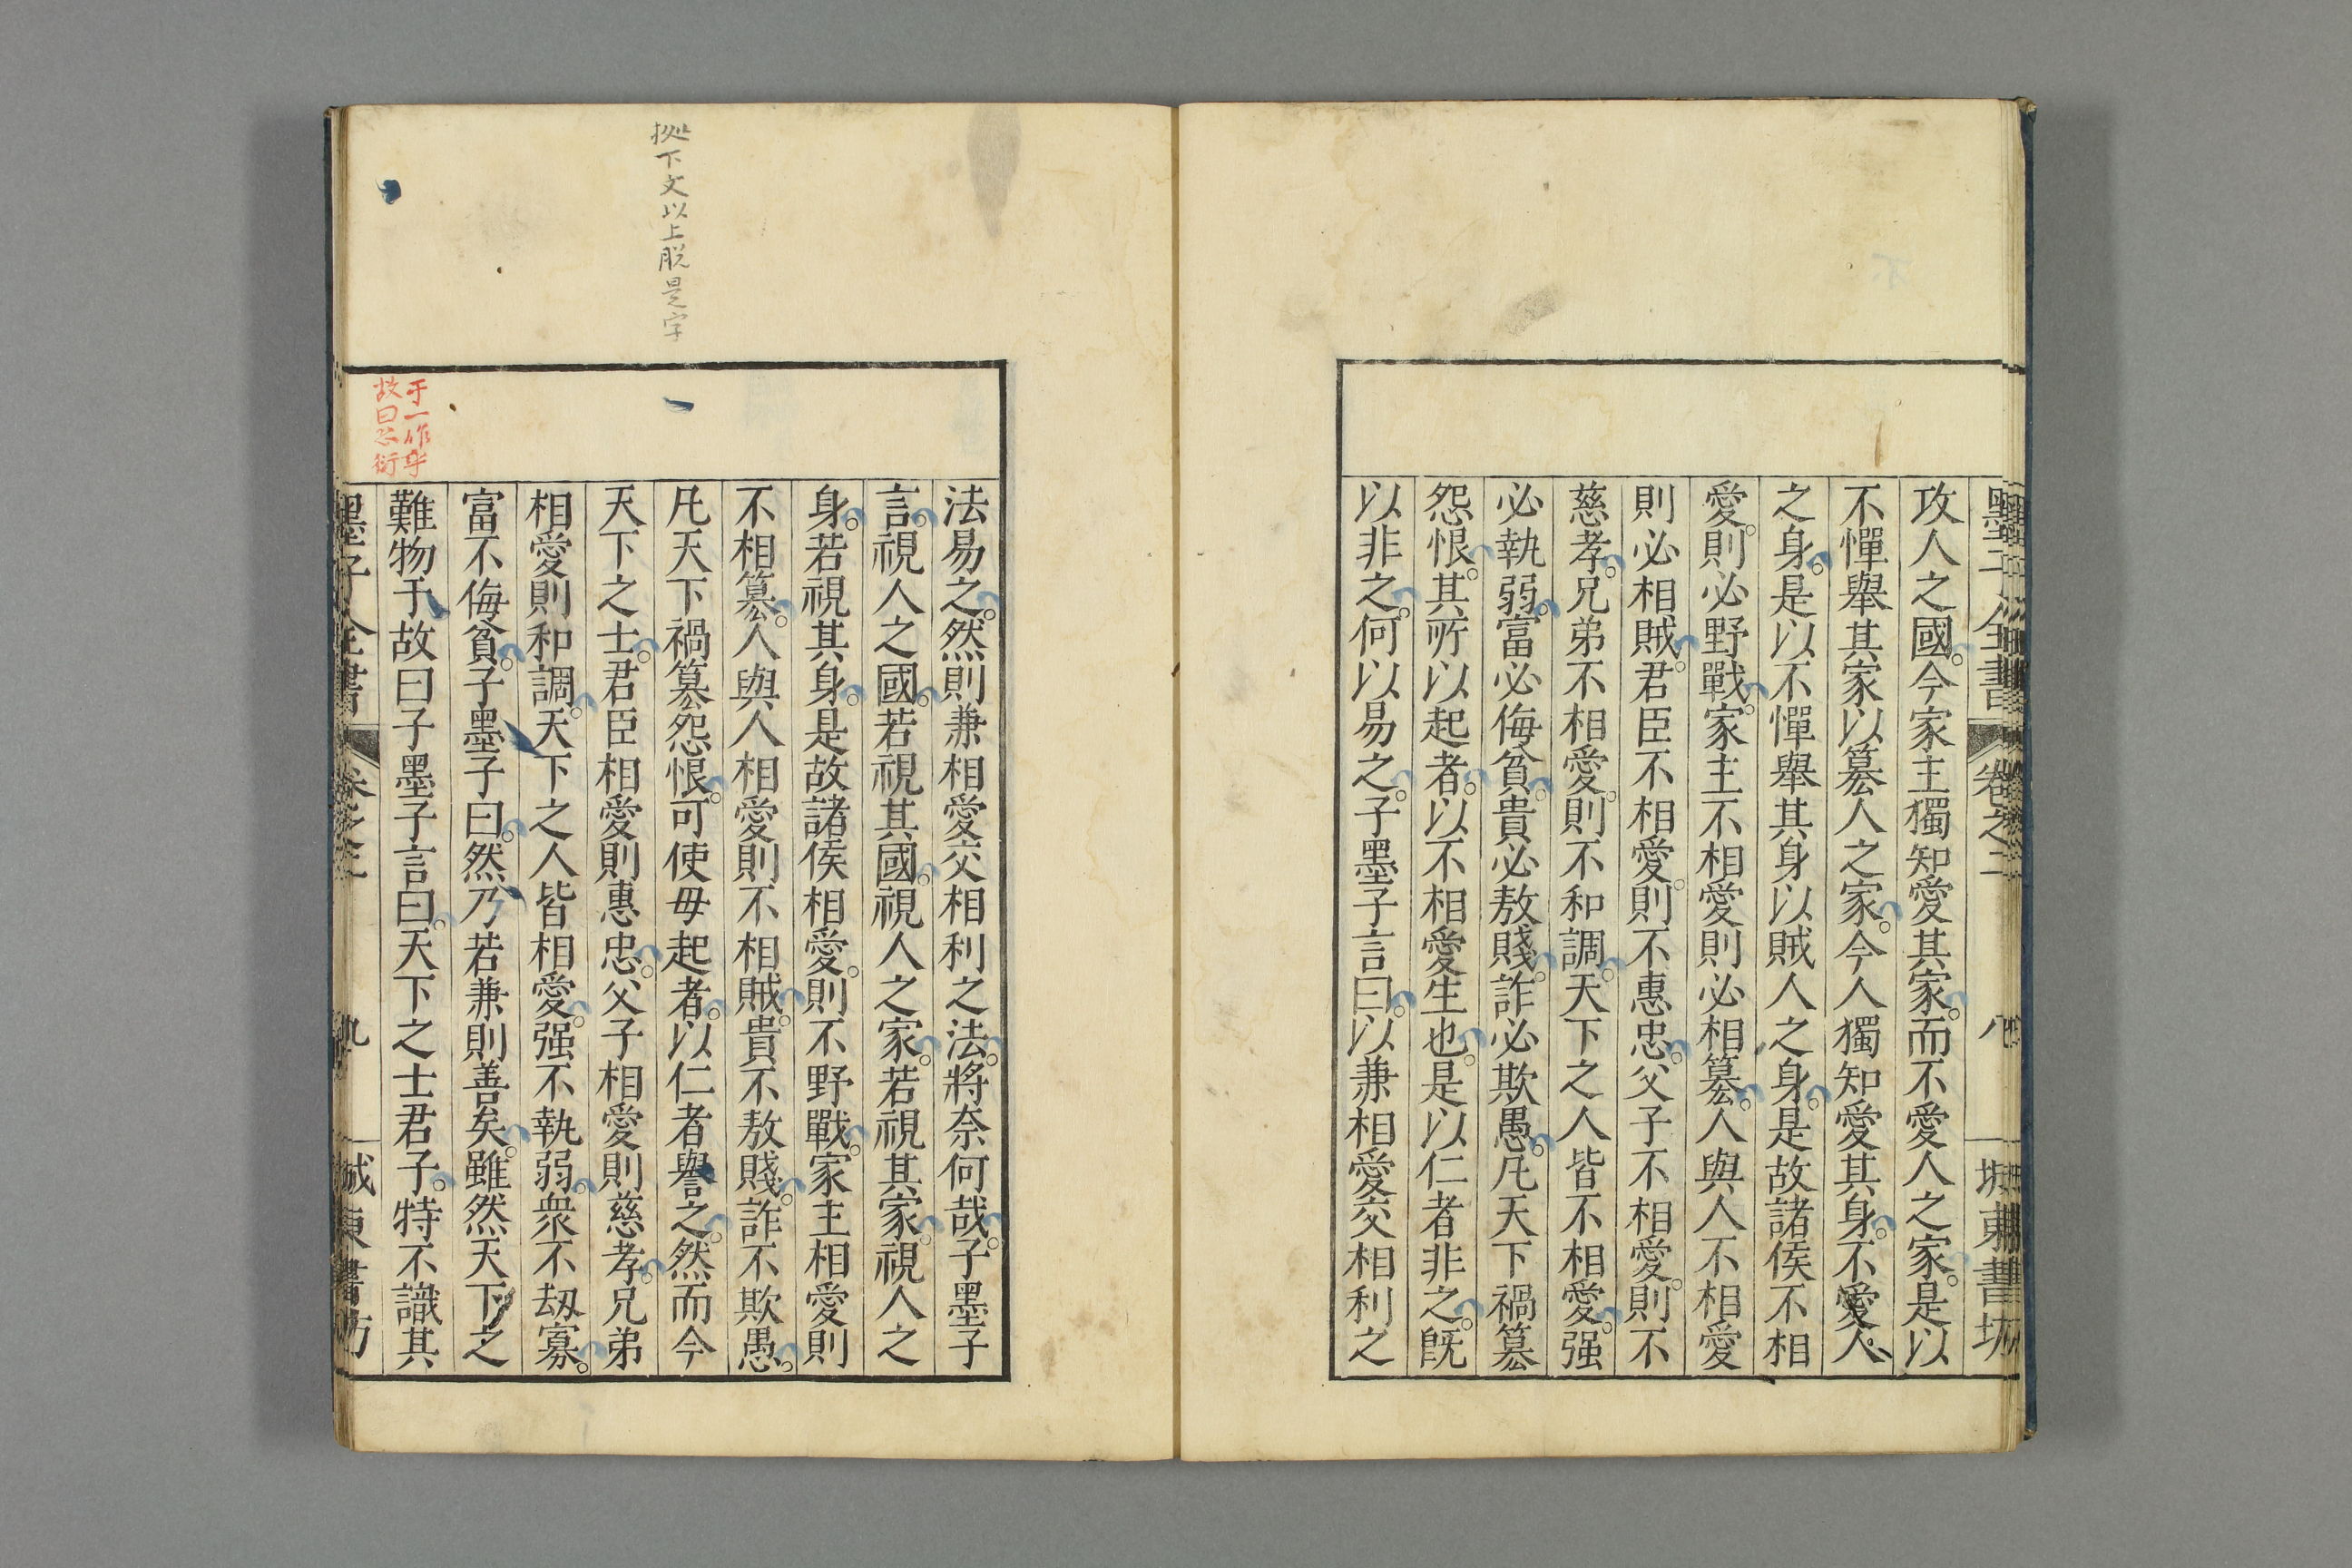 攻人之國。今家主獨知愛其家。而不愛人之家。是以
不憚舉其家以篡人之家。今人獨知愛其身。不愛人
之身。是以不憚舉其身以賊人之身。是故諸侯不相
愛。則必野戰。家主不相愛則必相篡。人與人不相愛
則必相賊。君臣不相愛。則不惠忠。父子不相愛。則不
慈孝。兄弟不相愛。則不和調。天下之人皆不相愛。强
必執弱。富必侮貧。貴必敖賤。詐必欺愚。凡天下禍篡
怨恨。其所以起者。以不相愛生也。是以仁者非之。旣
以非之。何以易之。子墨子言曰。以兼相愛交相利之
法易之。然則兼相愛交相利之法。將奈何哉。子墨子
言。視人之國。若視其國。視人之家。若視其家。視人之
身。若視其身。是故諸侯相愛。則不野戰。家主相愛則
不相篡。人與人相愛則不相賊。貴不敖賤。詐不欺愚。
凡天下禍篡怨恨。可使毋起者。以仁者譽之。然而今
天下之士。君臣相愛則惠忠。父子相愛則慈孝。兄弟
相愛則和調。天下之人皆相愛。强不執弱。衆不劫寡。
富不侮貧。子墨子曰。然乃若兼則善矣。雖然天下之
難物于故曰子墨子言曰。天下之士君子。特不識其
墨子全書 卷之二 八 城東書坊
墨子全書 卷之二 九 城東書坊
㩀下文以上脱是字
于一作乎
故曰公衍